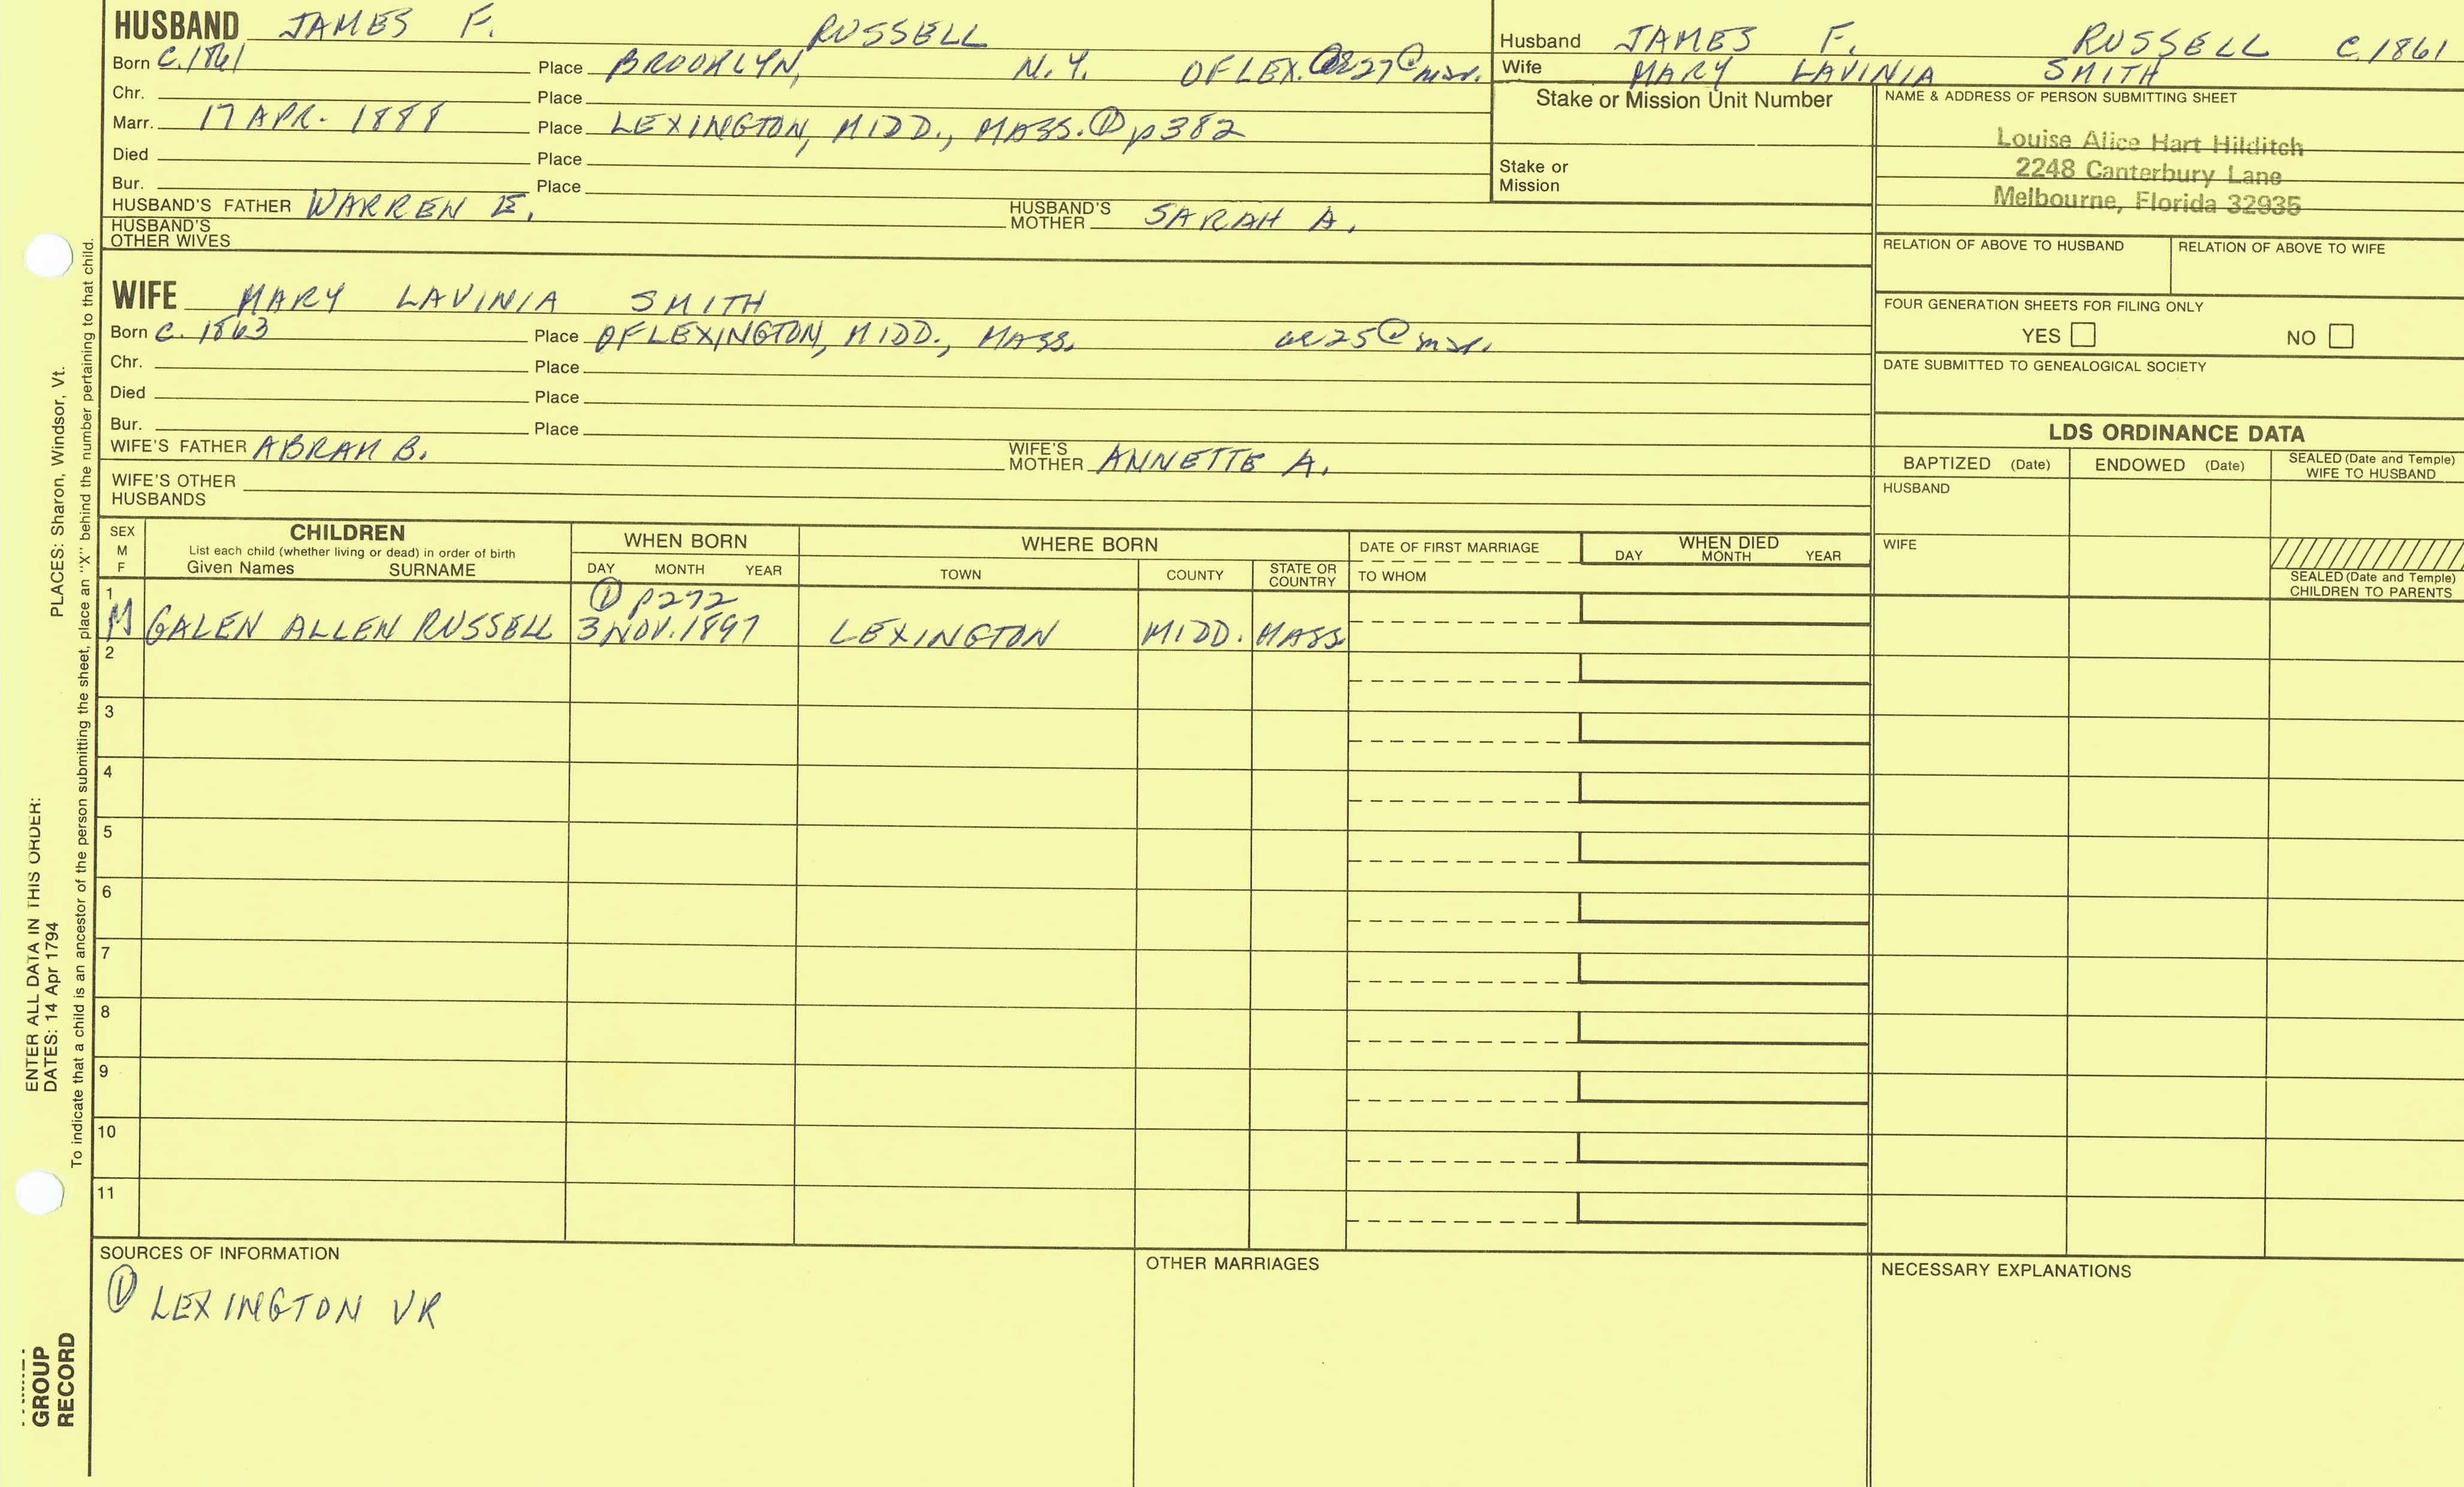 HUSBAND JAMES F. RUSSELL
Born C. 1861 Place BROOKLYN, N.Y. OF LEX. 27 @ mar.
Chr. Place
Marr. 17 APR. 1888 Place LEXINGTON, MIDD., MASS. ① p382
Died Place
Bur. Place
HUSBAND'S FATHER WARREN E. HUSBAND'S MOTHER SARAH A.
HUSBAND'S OTHER WIVES
Husband JAMES F. RUSSELL C. 1861
Wife MARY LAVINIA SMITH
Stake or Mission Unit Number
Stake or
Mission
NAME & ADDRESS OF PERSON SUBMITTING SHEET
Louise Alice Hart Hilditch
2248 Canterbury Lane
Melbourne, Florida 32935
RELATION OF ABOVE TO HUSBAND RELATION OF ABOVE TO WIFE
FOUR GENERATION SHEETS FOR FILING ONLY
YES NO
DATE SUBMITTED TO GENEALOGICAL SOCIETY
WIFE MARY LAVINIA SMITH
Born C. 1863 Place OF LEXINGTON, MIDD., MASS. ae 25 @ mar.
Chr. Place
Died Place
Bur. Place
WIFE'S FATHER ABRAM B. WIFE'S MOTHER ANNETTE A.
WIFE'S OTHER
HUSBANDS
LDS ORDINANCE DATA
BAPTIZED (Date) ENDOWED (Date) SEALED (Date and Temple) WIFE TO HUSBAND
HUSBAND
WIFE
SEALED (Date and Temple)
CHILDREN TO PARENTS
SEX M F
CHILDREN
List each child (whether living or dead) in order of birth
Given Names SURNAME
WHEN BORN
DAY MONTH YEAR
WHERE BORN
TOWN COUNTY STATE OR COUNTRY
DATE OF FIRST MARRIAGE
TO WHOM
WHEN DIED
DAY MONTH YEAR
① p272
1 M GALEN ALLEN RUSSELL 3 NOV. 1897 LEXINGTON MIDD. MASS
2
3
4
5
6
7
8
9
10
11
SOURCES OF INFORMATION
① LEXINGTON VR
OTHER MARRIAGES
NECESSARY EXPLANATIONS
ENTER ALL DATA IN THIS ORDER:
DATES: 14 Apr 1794 PLACES: Sharon, Windsor, Vt.
To indicate that a child is an ancestor of the person submitting the sheet, place an "X" behind the number pertaining to that child.
GROUP
RECORD